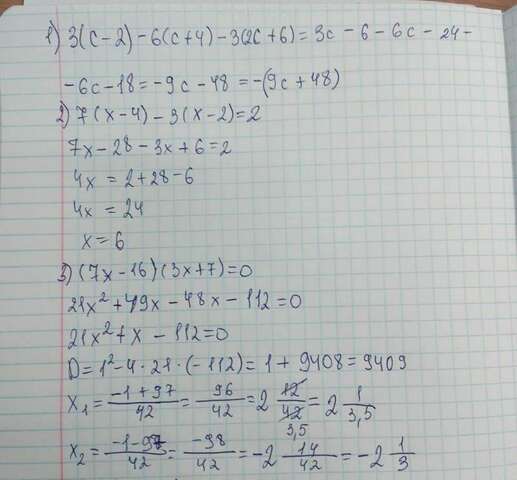 1) 3(c-2)-6(c+4)-3(2c+6)=3c-6-6c-24-
-6c-18=-9c-48=-(9c+48)
2) 7(x-4)-3(x-2)=2
7x-28-3x+6=2
4x=2+28-6
4x=24
x=6
3) (7x-16)(3x+7)=0
21x²+49x-48x-112=0
21x²+x-112=0
D=1²-4·21·(-112)=1+9408=9409
x₁=\frac{-1+97}{42}=\frac{96}{42}=2\frac{12}{42}=2\frac{1}{3,5}
3,5
x₂=\frac{-1-97}{42}=\frac{-98}{42}=-2\frac{14}{42}=-2\frac{1}{3}